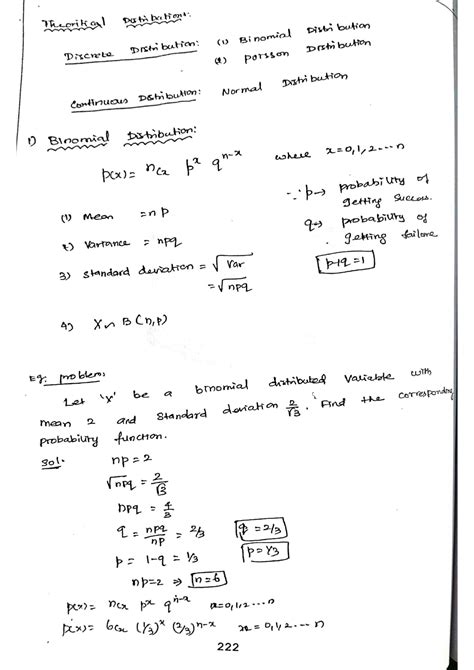 Theoritical Distributions:
Discrete Distribution: (1) Binomial Distribution
(2) Poisson Distribution
Continuous Distribution: Normal Distribution
1) Binomial Distribution:
P(x) = nCx p^x q^n-x where x=0,1,2---n
∵ p→ probability of getting success.
q→ probability of getting failure
p+q=1
(1) Mean = np
2) Variance = npq
3) Standard deviation = √Var
= √npq
4) X∽ B(n,p)
Eg: problem:
Let 'x' be a binomial distributed variable with
mean 2 and standard deviation 2/√3. Find the corresponding
probability function.
Sol. np = 2
√npq = 2/√3
npq = 4/3
q = npq/np = 2/3 q = 2/3
p = 1-q = 1/3 p = 1/3
np=2 ⇒ n=6
p(x) = nCx p^x q^n-x x=0,1,2---n
p(x) = 6Cx (1/3)^x (2/3)^n-x x=0,1,2---n
222